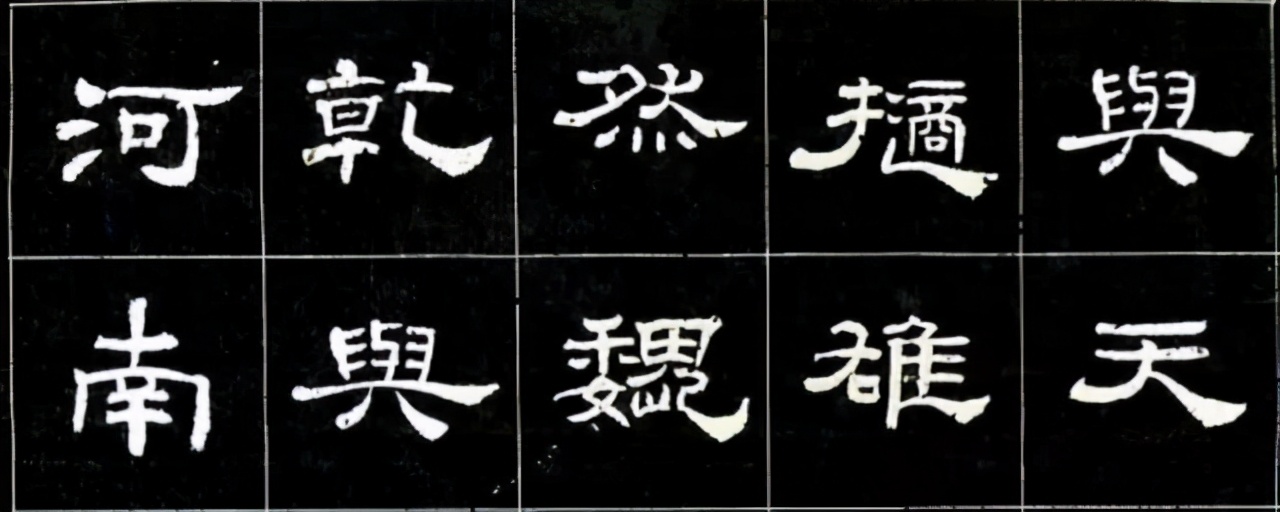 與天
擿雄
然魏
乾與
河南